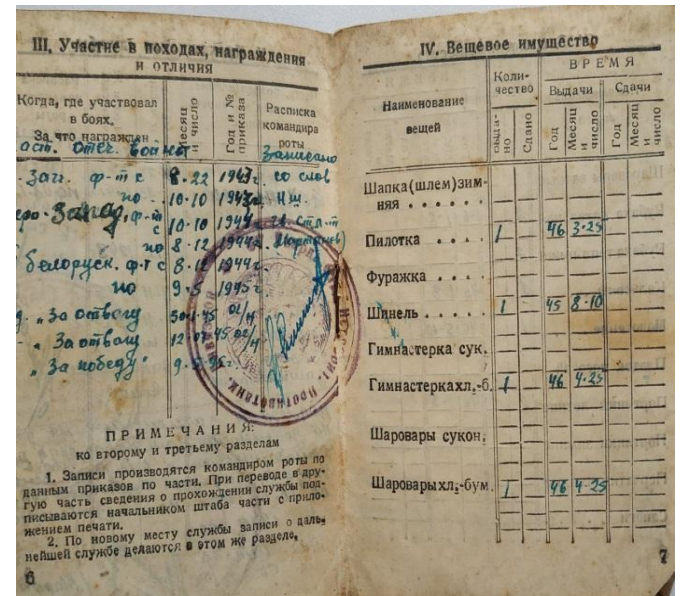 III. Участие в походах, награждения
и отличия
Когда, где участвовал
в боях.
За что награжден
Месяц
и число
Год и №
приказа
Расписка
командира
роты
аст. отеч. войны
Записано
Зап. ф-т с 8-22 1943г. со слов
по 10.10 1943г.
Запад. ф-т
с 10.10 1944г.
по 8.12 1944г.
белорус. ф-т с 8.12 1944г.
по 9.5 1945г.
"За отвагу 30.1.45 02/н
"За отвагу 12.02.45 02/н
"За победу" 9.5.45г.
Противотанк.
ПРИМЕЧАНИЯ:
ко второму и третьему разделам
1. Записи производятся командиром роты по
данным приказов по части. При переводе в дру-
гую часть сведения о прохождении службы под-
писываются начальником штаба части с прило-
жением печати.
2. По новому месту службы записи о даль-
нейшей службе делаются в этом же разделе.
6
IV. Вещевое имущество
Наименование
вещей
Коли-
чество
ВРЕМЯ
Выдачи
Сдачи
Выда-
но
Сдано
Год
Месяц
и
число
Год
Месяц
и
число
Шапка (шлем) зим-
няя . . . . . .
Пилотка . . . . 1 46 3.25
Фуражка . . . .
Шинель . . . . . 1 45 8.10
Гимнастерка сук.
Гимнастерка хл.-б. 1 46 4.25
Шаровары сукон.
Шаровары хл.-бум. 1 46 4.25
7